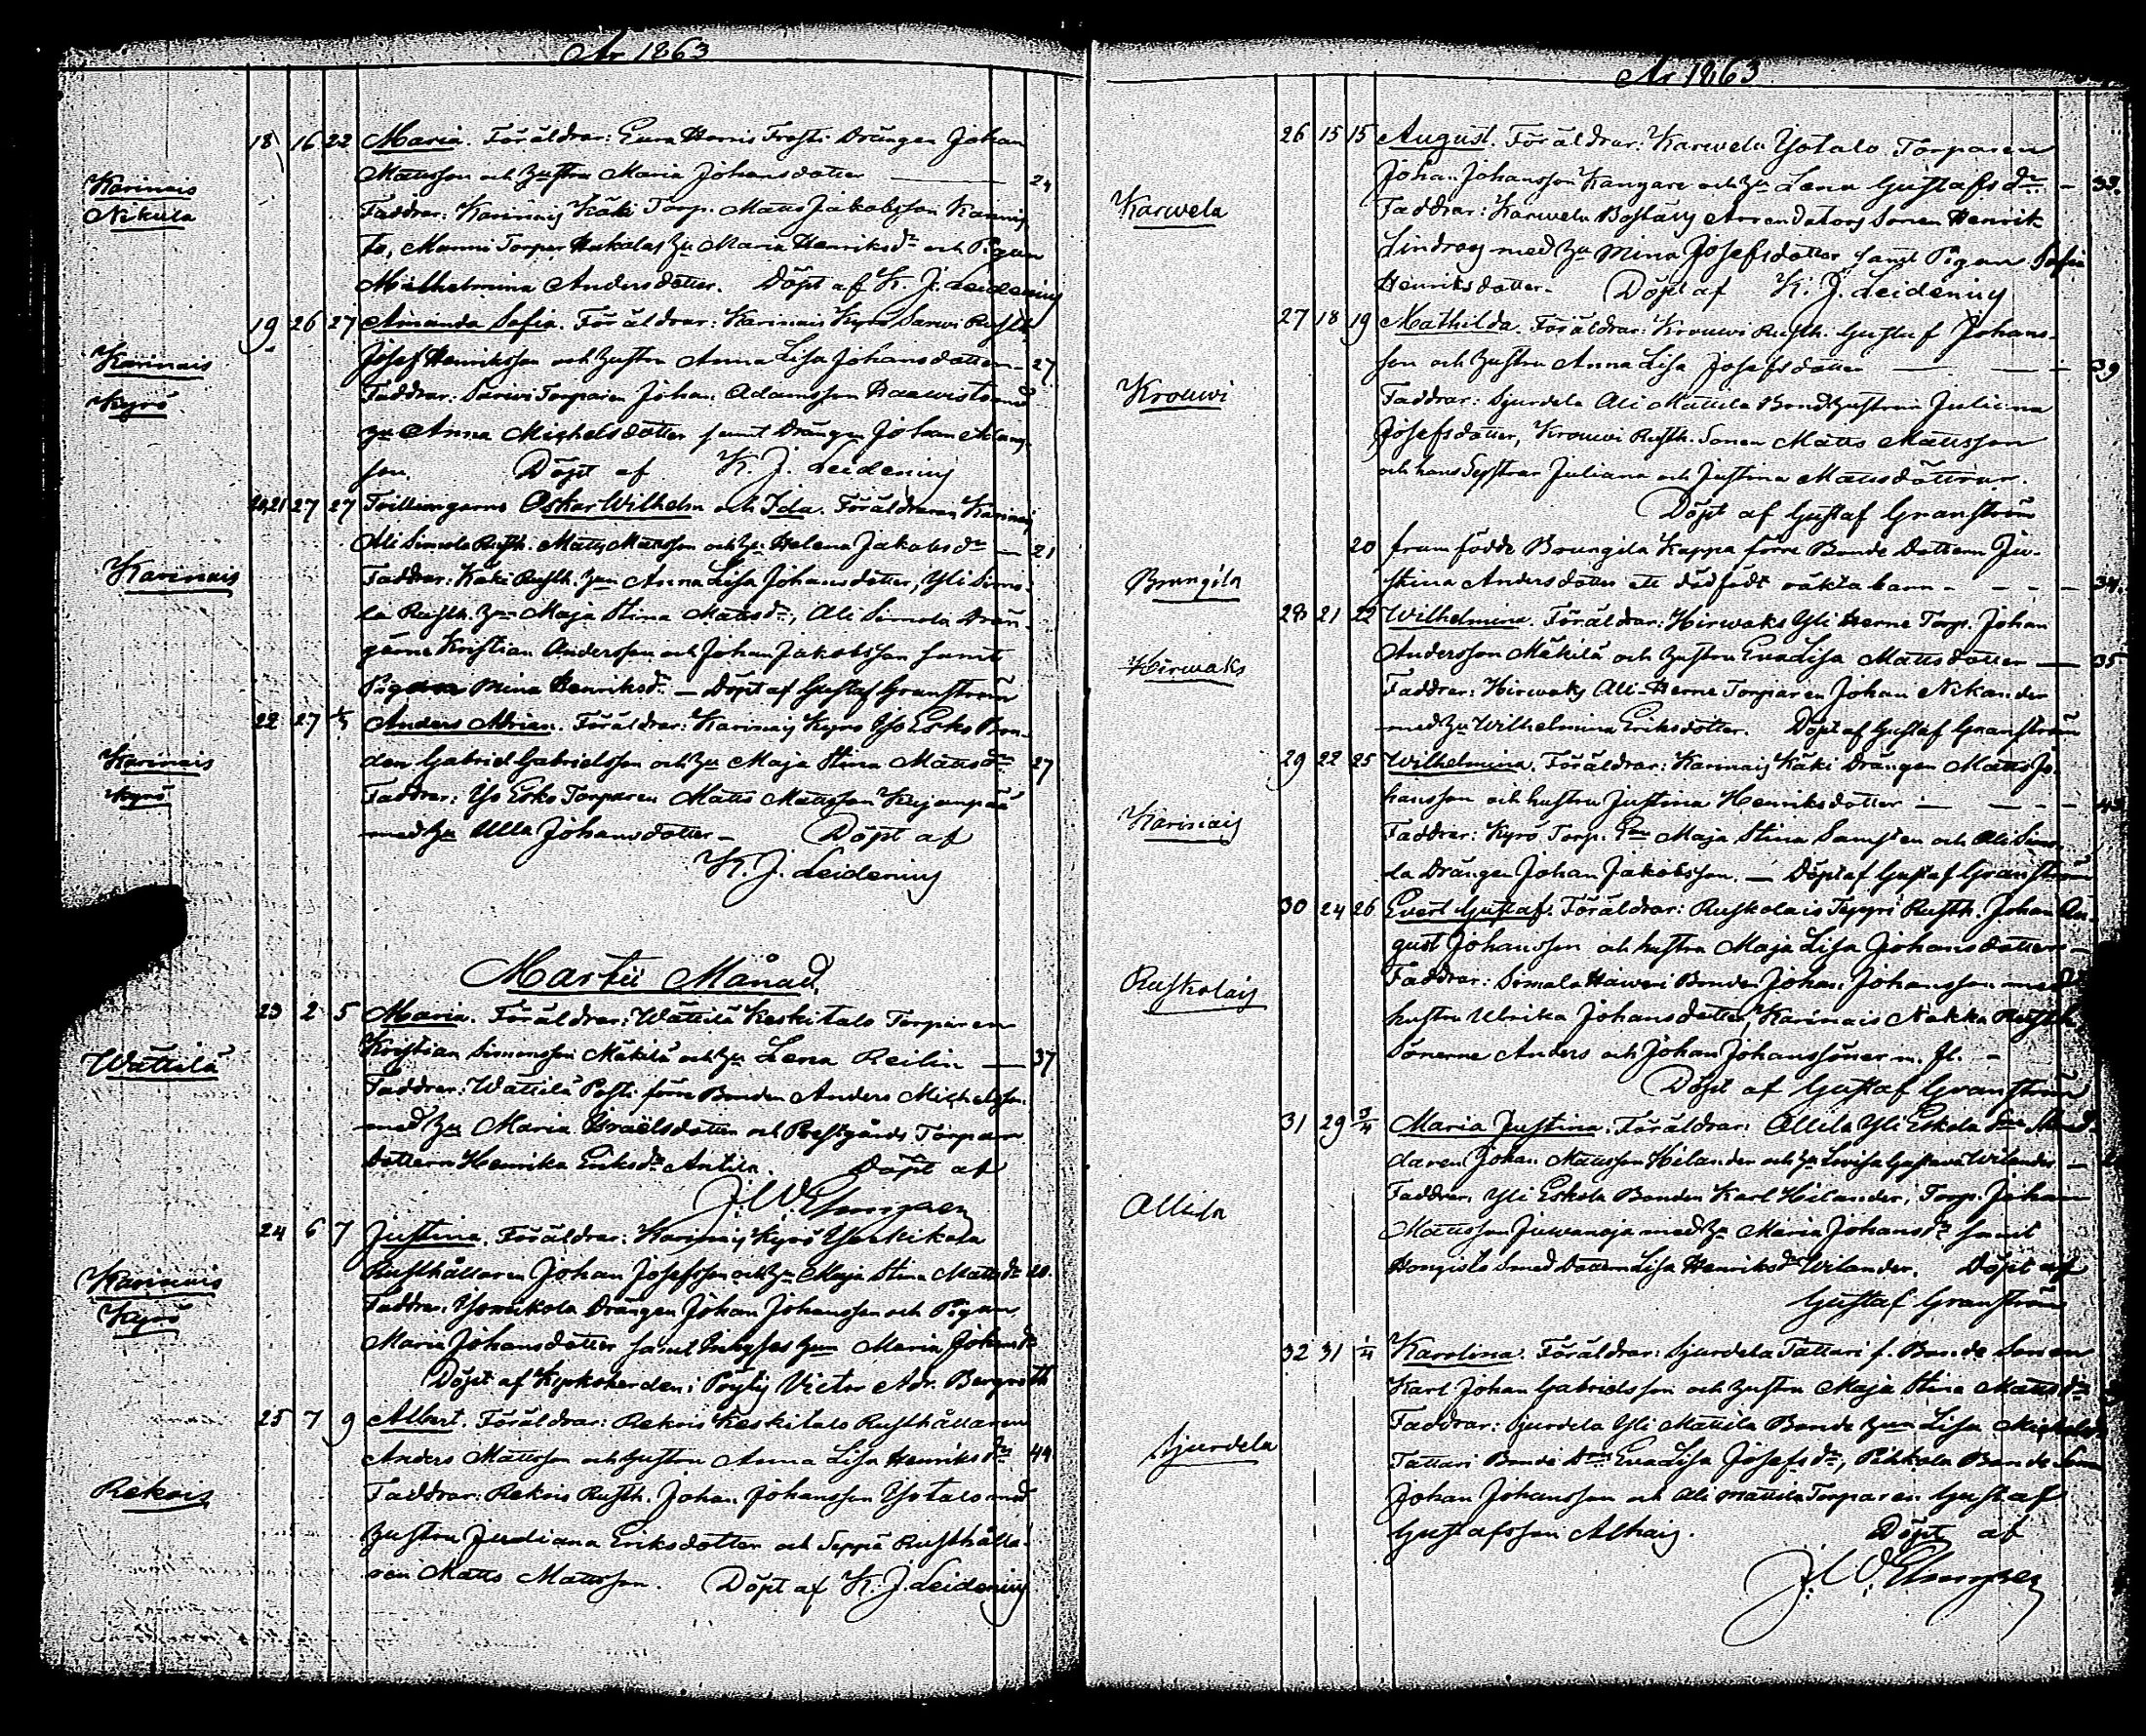 År 1863
18 16 22 Maria. Föräldrar: Eura Drängen Johan
Karinais
Mattsson och hustru Maria Johansdotter 24
Nikula
Faddrar: Karinais Käki Torp. Matts Jakobsson
Torpar Maria Henriksdr och Pigan
Wilhelmina Andersdotter. Döpt af K. J. Leidenius
19 26 27 Amanda Sofia. Föräldrar: Karinais Kyrö Sarwi Rusth.
Karinais
Josef Henriksson och hustru Anna Lisa Johansdotter 27
Kyrö
Faddrar: Sarwi Torparen Johan Adamsson med
hu Anna Michelsdotter samt Drängen Johan Adams-
son. Döpt af K. J. Leidenius
20,21 27 27 Tvillingarne Oskar Wilhelm och Ida. Föräldrarne Karinais
Karinais
Ali Simola Rusth. Matts Mattsson och hu Helena Jakobsdr 21
Faddrar: Käki Rusth. hun Anna Lisa Johansdotter, Yli Simo-
la Rusth. hun Maja Stina Mattsdr, Ali Simola Drän-
garne Kristian Andersson och Johan Jakobsson samt
Pigan Mina Henriksdr – Döpt af Gustaf Granström
22 27 1/3 Anders Adrian. Föräldrar: Karinais Kyrö Iso Esko Bon-
Karinais
den Gabriel Gabrielsson och hu Maja Stina Mattsdr 27
Kyrö
Faddrar: Iso Esko Torparen Matts Mattsson
med hu Ulla Johansdotter – Döpt af
K. J. Leidenius
Martii Månad
23 2 5 Maria. Föräldrar: Wättilä Keskitalo Torparen
Wättilä
Kristian Simonsson Mäkilä och hu Lena Reilin 37
Faddrar: Wättilä Posti förre Bonden Anders Michelsson
med hu Maria Israelsdotter och Prestgårds Torpare
Dottern Henrika Eriksdr Antila. Döpt af
24 6 7 Justina. Föräldrar: Karinais Kyrö
Karinais
Rusthållaren Johan Josefsson och hu Maja Stina Mattsdr 20.
Kyrö
Faddrar: Drängen Johan Johansson och Pigan
Maria Johansdotter samt Inhyses hun Maria Johansdr
Döpt af Kyrkoherden i Pöytis Victor Adr. Bergroth
25 7 9 Albert. Föräldrar: Rekois Keskitalo Rusthållaren
Anders Mattsson och hustru Anna Lisa Henriksdr 44
Rekois
Faddrar: Rekois Rusth. Johan Johansson Ylitalo med
hustru Juliana Eriksdotter och Seppä Rusthålla-
ren Matts Mattsson. Döpt af K. J. Leidenius
År 1863
26 15 15 August. Föräldrar: Karwela Torparen
Karwela
Johan Johansson Kangare och hu Lena Gustafsdr – 33.
Faddrar: Karwela Arrendators Sonen Henrik
Lindroos med hu Mina Josefsdotter samt Pigan Sofia
Henriksdotter. Döpt af K. J. Leidenius
27 18 19 Mathilda. Föräldrar: Krouwi Rusth. Gustaf Johans-
Krouwi
son och hustru Anna Lisa Josefsdotter 39
Faddrar: Sjurdela Ali Mattila Bond hustrun Juliana
Josefsdotter, Krouwi Rusth. Sonen Matts Mattsson
och hans Systrar Juliana och Justina Mattsdöttrar.
Döpt af Gustaf Granström
Brungila
20 framfödde Brungila Kappa förre Bonde Dottern Ju-
stina Andersdotter ett dödfödt oäkta barn – – – 34.
28 21 22 Wilhelmina. Föräldrar: Hirwaks Yli Herne Torp. Johan
Hirwaks
Andersson Mäkilä och hustru Eva Lisa Mattsdotter – 35
Faddrar: Hirwaks Ali Herne Torparen Johan Nikander
med hu Wilhelmina Eriksdotter. Döpt af Gustaf Granström
29 22 25 Wilhelmina. Föräldrar: Karinais Käki Drängen Matts Jo-
Karinais
hansson och hustru Justina Henriksdotter –
Faddrar: Kyrö Torp. Maja Stina Samsten och Ali Simo-
la Drängen Johan Jakobsson. – Döpt af Gustaf Granström
30 24 26 Evert Gustaf. Föräldrar: Ruskolais Seppri Rusth. Johan Au-
gust Johansson och hustru Maja Lisa Johansdotter
Ruskolais
Faddrar: Simala Bonden Johan Johansson med
hustru Ulrika Johansdotter, Karinais Nokka Rusth.
Sönerne Anders och Johan Johanssöner m. fl. –
Döpt af Gustaf Granström
31 29 3/4 Maria Justina. Föräldrar: Allila Yli Eskola
Allila
daren Johan Mattsson Hilander och hu Lovisa Gustava Wilander –
Faddrar: Yli Eskola Bonden Karl Hilander, Torp. Johan
Mattsson Juwanoja med hu Maria Johansdr samt
Hongisto Smed Dottern Lisa Henriksdr Wilander. Döpt af
Gustaf Granström
32 31 1/4 Karolina. Föräldrar: Sjurdela Tattari f. Bonde Sonen
Karl Johan Gabrielsson och hustru Maja Stina Mattsdr
Sjurdela
Faddrar: Sjurdela Yli Mattila Bonde hun Lisa Michelsdr
Tattari Bonde Eva Lisa Josefsdr, Pihkola Bonde Son
Johan Johansson och Ali Mattila Torparen Gustaf
Gustafsson Döpt af